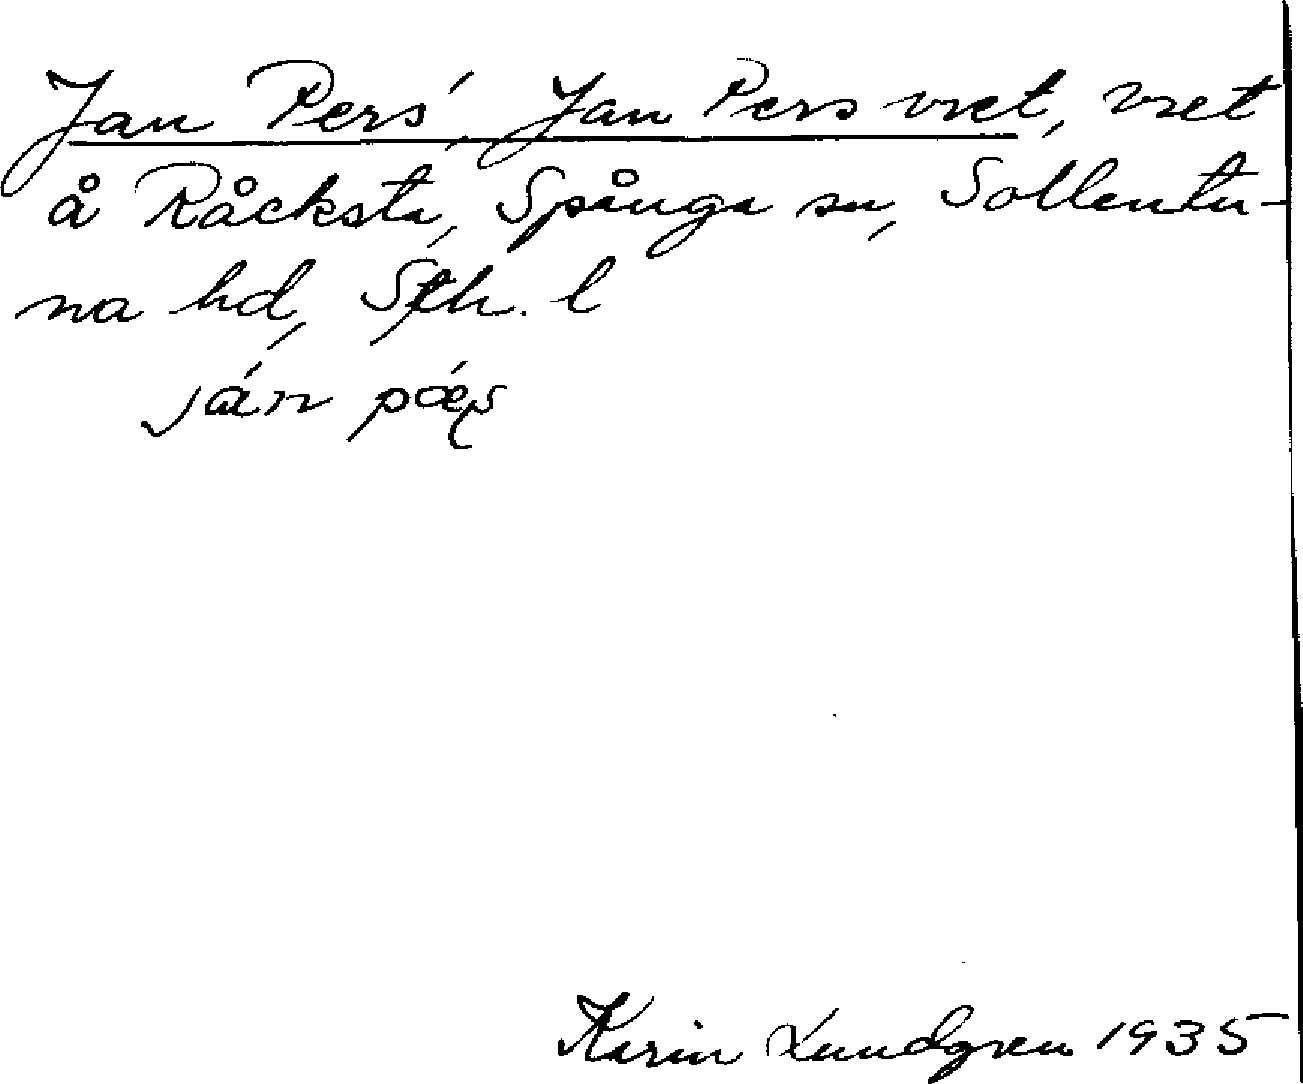 Jan Pers', Jan Pers vret, vret
å Råcksta, Spånga sn, Sollentu-
na hd, Sth. l
ján pǽʂ
Karin Lundgren 1935